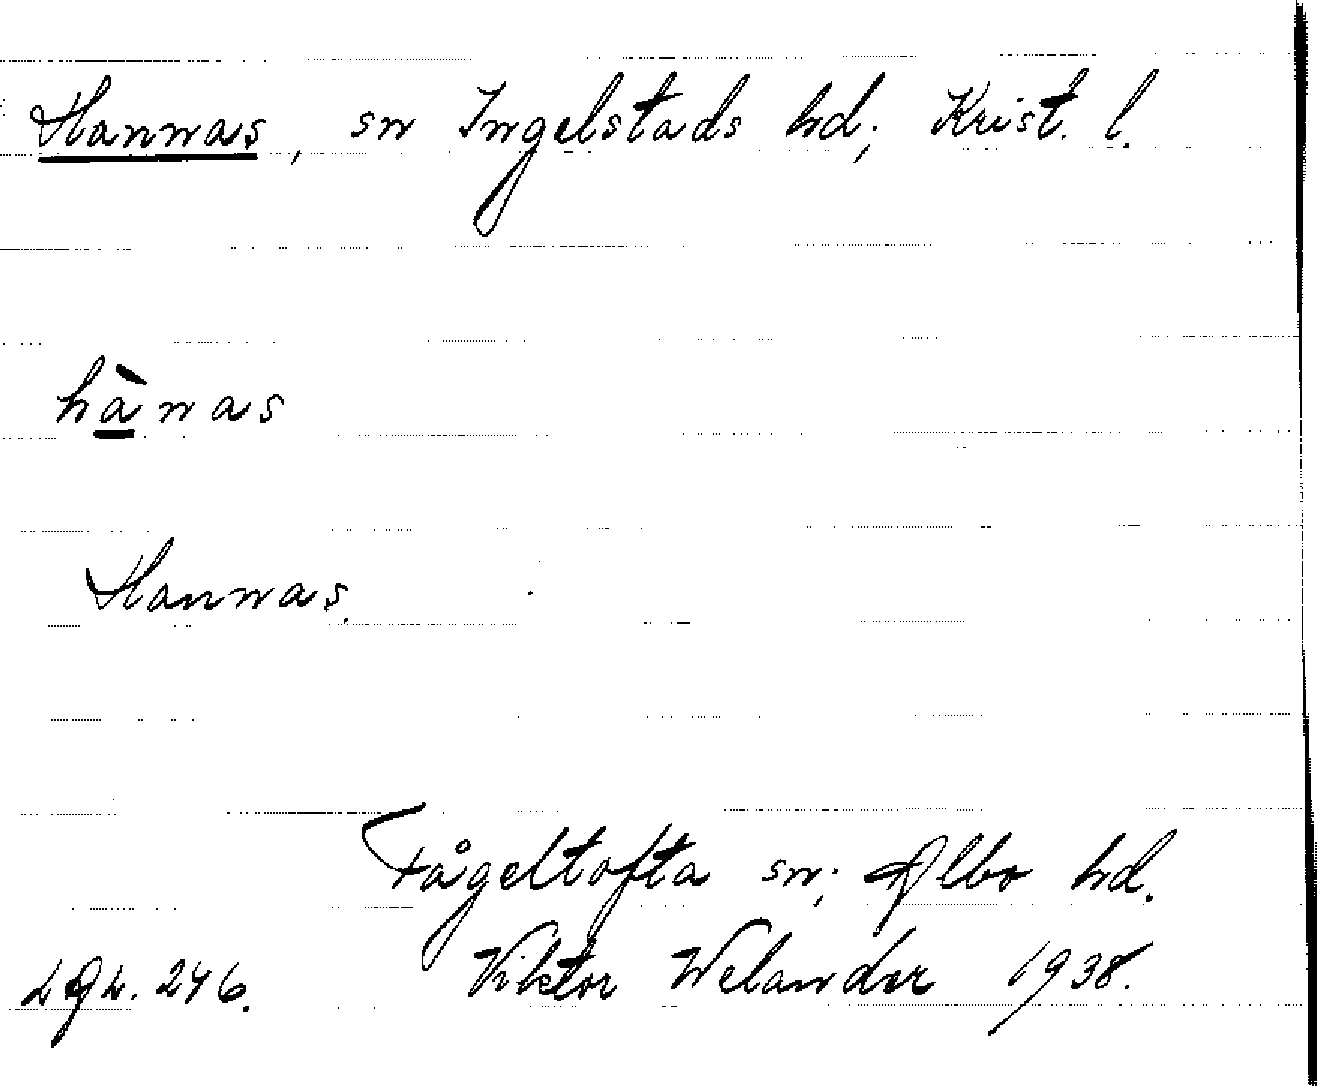 Hannas, sn Ingelstads hd; Krist. l.
hànas
Hannas.
Fågeltofta sn; Albo hd.
Viktor Welander 1938.
246.